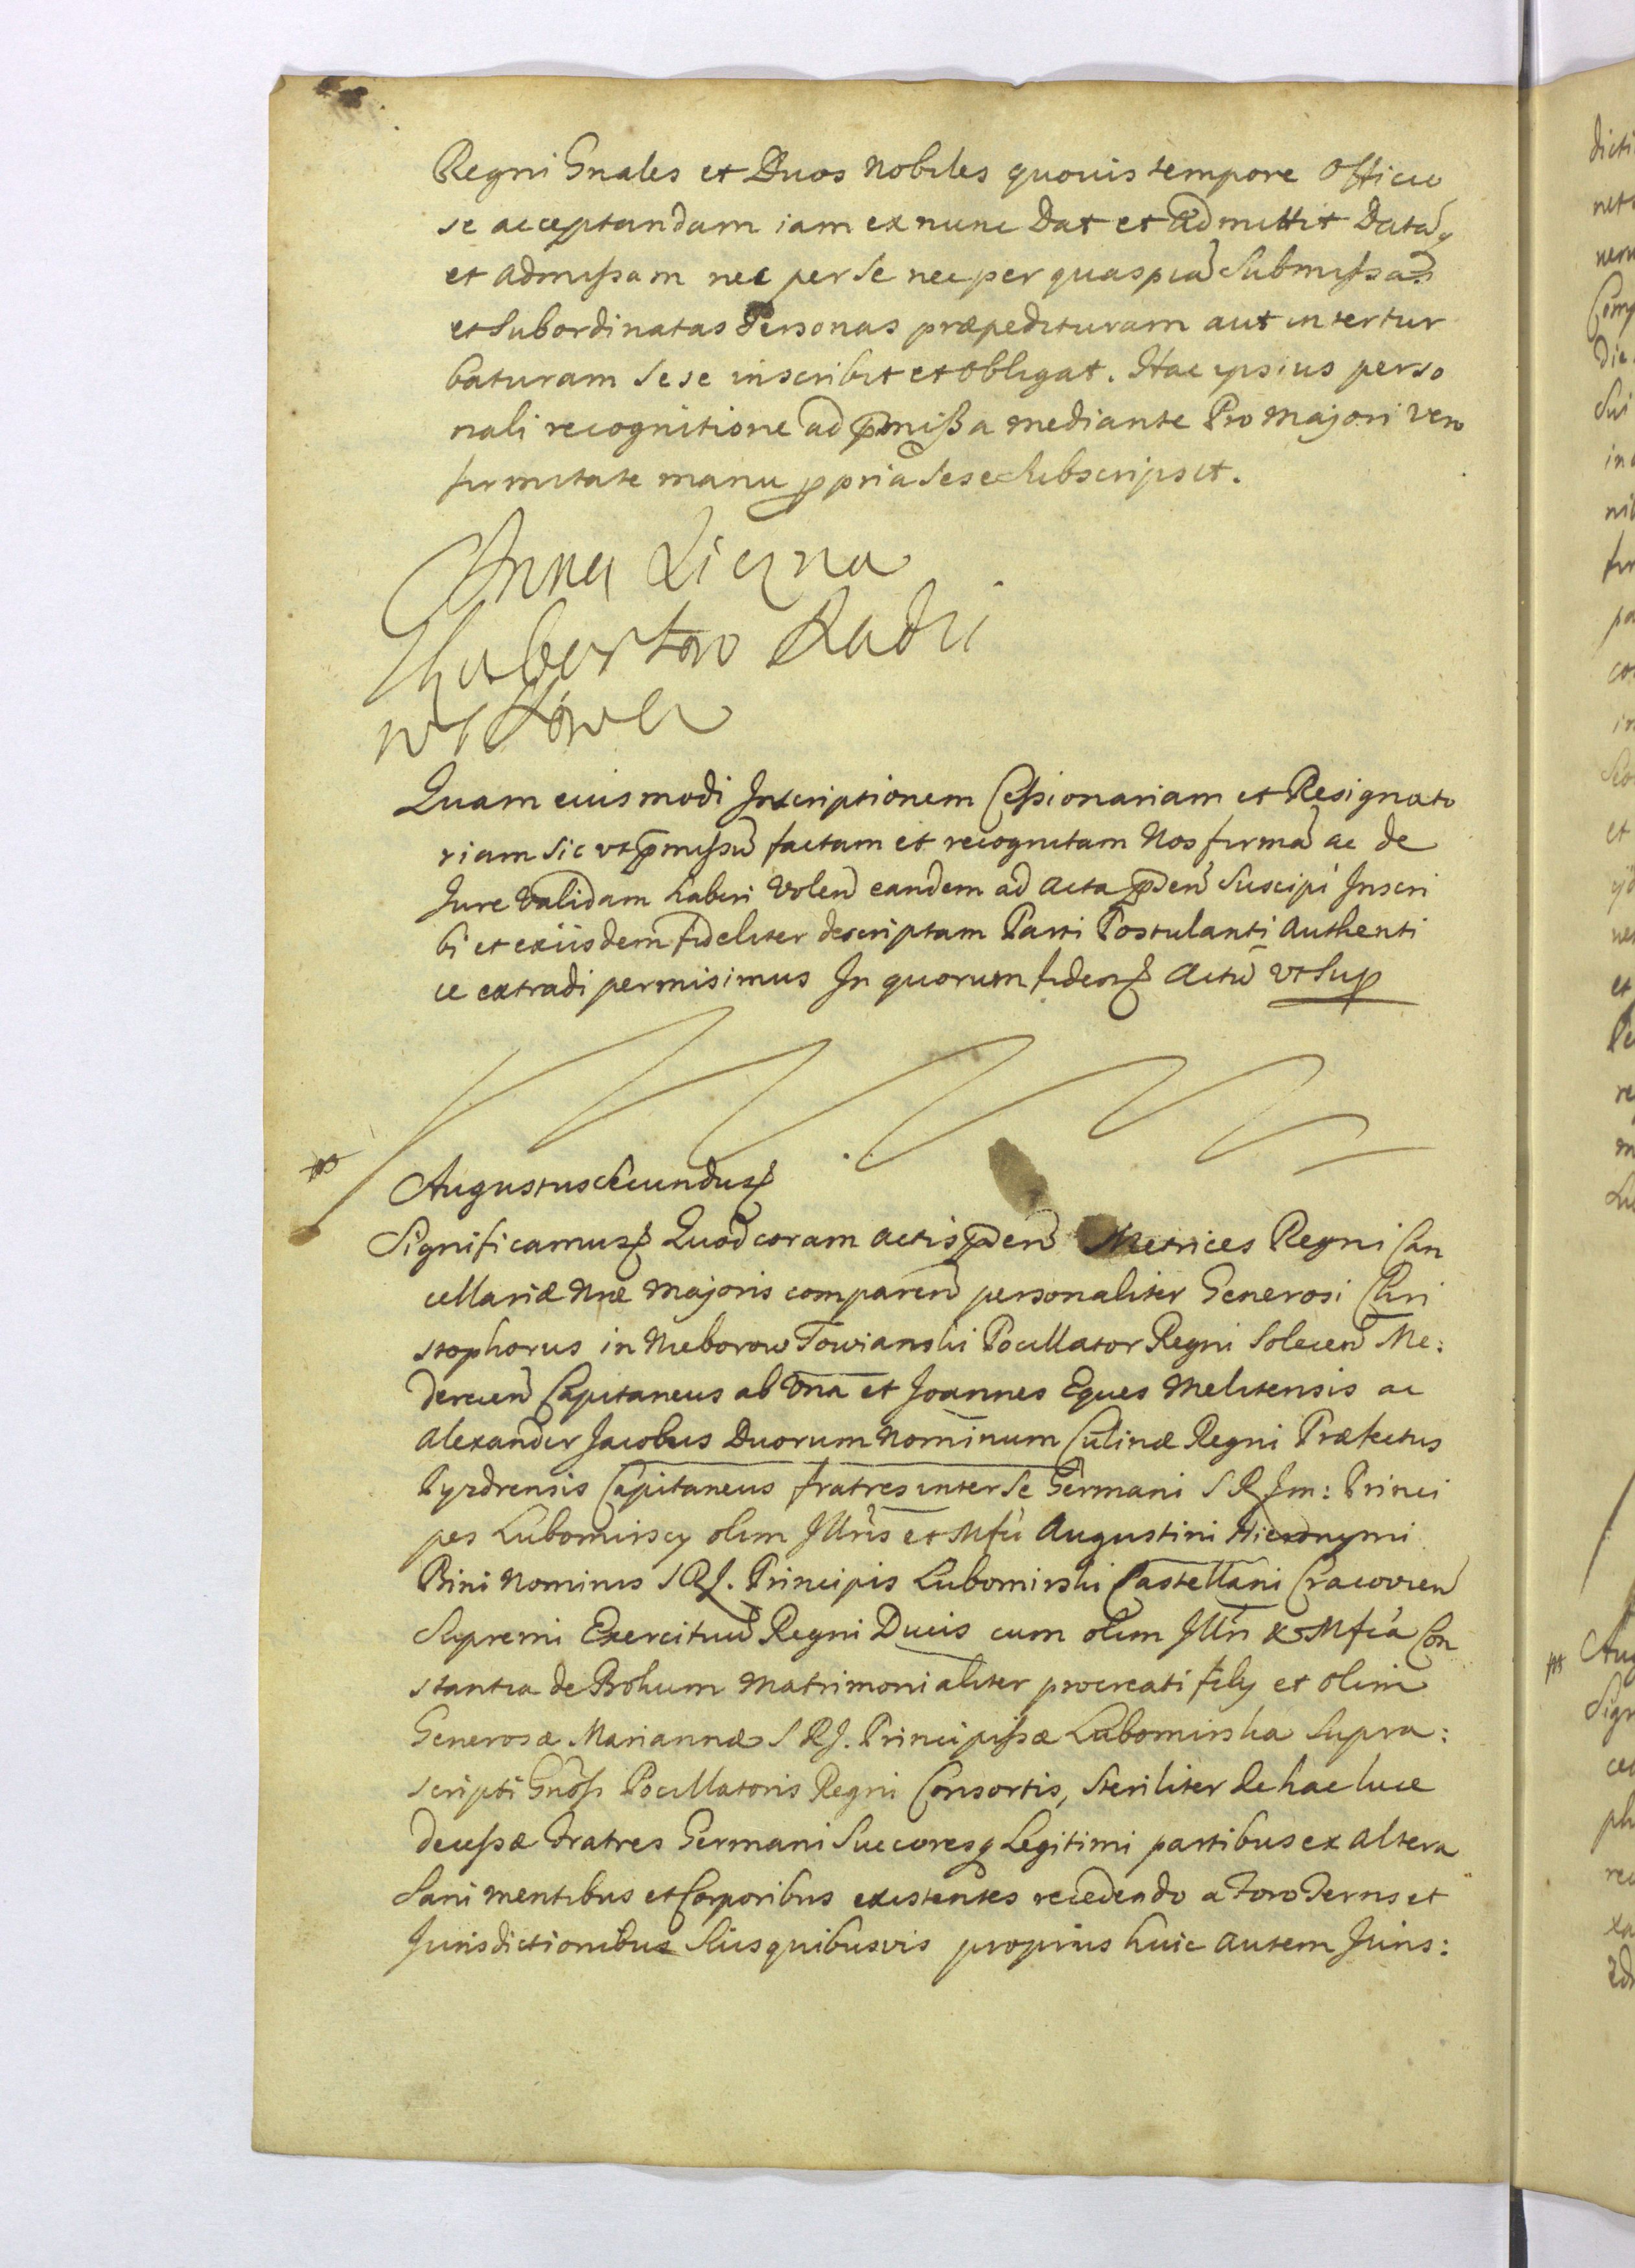 Regni Gnales et Duos Nobiles quovis tempore Officio
se acceptandam iam ex nunc Dat et admittit Datāq
et admissam nec per se nec per quaspiā Submissas
et Subordinatas Personas præpedituram aut intertur
baturam sese inscribit et obligat. Hac ipsius perso
nali recognitione ad p̄missa mediante Pro majori vero
firmitate manu ppria sese Subscripsit.
Anna Liczna
Hubertow Radzi
Quam eiusmodi Inscriptionem Cessionariam et Resignato
riam sic vt p̄missū factam et recognitam Nos firmā ac de
Jure Validam haberi volen eandem ad acta p̄den Suscipi Inscri
bi et exiisdem fideliter descriptam Parti Postulanti Authenti
ce extradi permisimus In quorum fidem Actū vt Sup
Augustus Secundus
Significamus Quod coram actis p̄den Metrices Regni Can
cellariæ Nræ Majoris comparen personaliter Generosi Chri
stophorus in Nieborow Towianski Pocillator Regni Solecen Me:
derecen Capitaneus ab vna et Joannes Eques Melitensis ac
Alexander Jacobus Duorum Nominum Culinæ Regni Præfectus
Pyzdrensis Capitaneus fratres inter se Germani S R Im: Princi
pes Lubomirscy olim Illris et Mfci Augustini Hieronymi
Bini Nominis S R J. Principis Lubomirski Castellani Cracovien
Supremi Exercituū Regni Ducis cum olim Illri et Mfca Con
stantia de Bohum Matrimonialiter procreati filij et olim
Generosæ Mariannæ S R J. Principissæ Lubomirska supra:
scripti Gnosi Pocillatoris Regni Consortis, steriliter de hac luce
decessæ Fratres Germani Succoresq Legitimi partibus ex altera
Sani mentibus et Corporibus existentes recedendo a Foro Terris et
Jurisdictionibus Suis quibusvis proprius huic autem Juris: